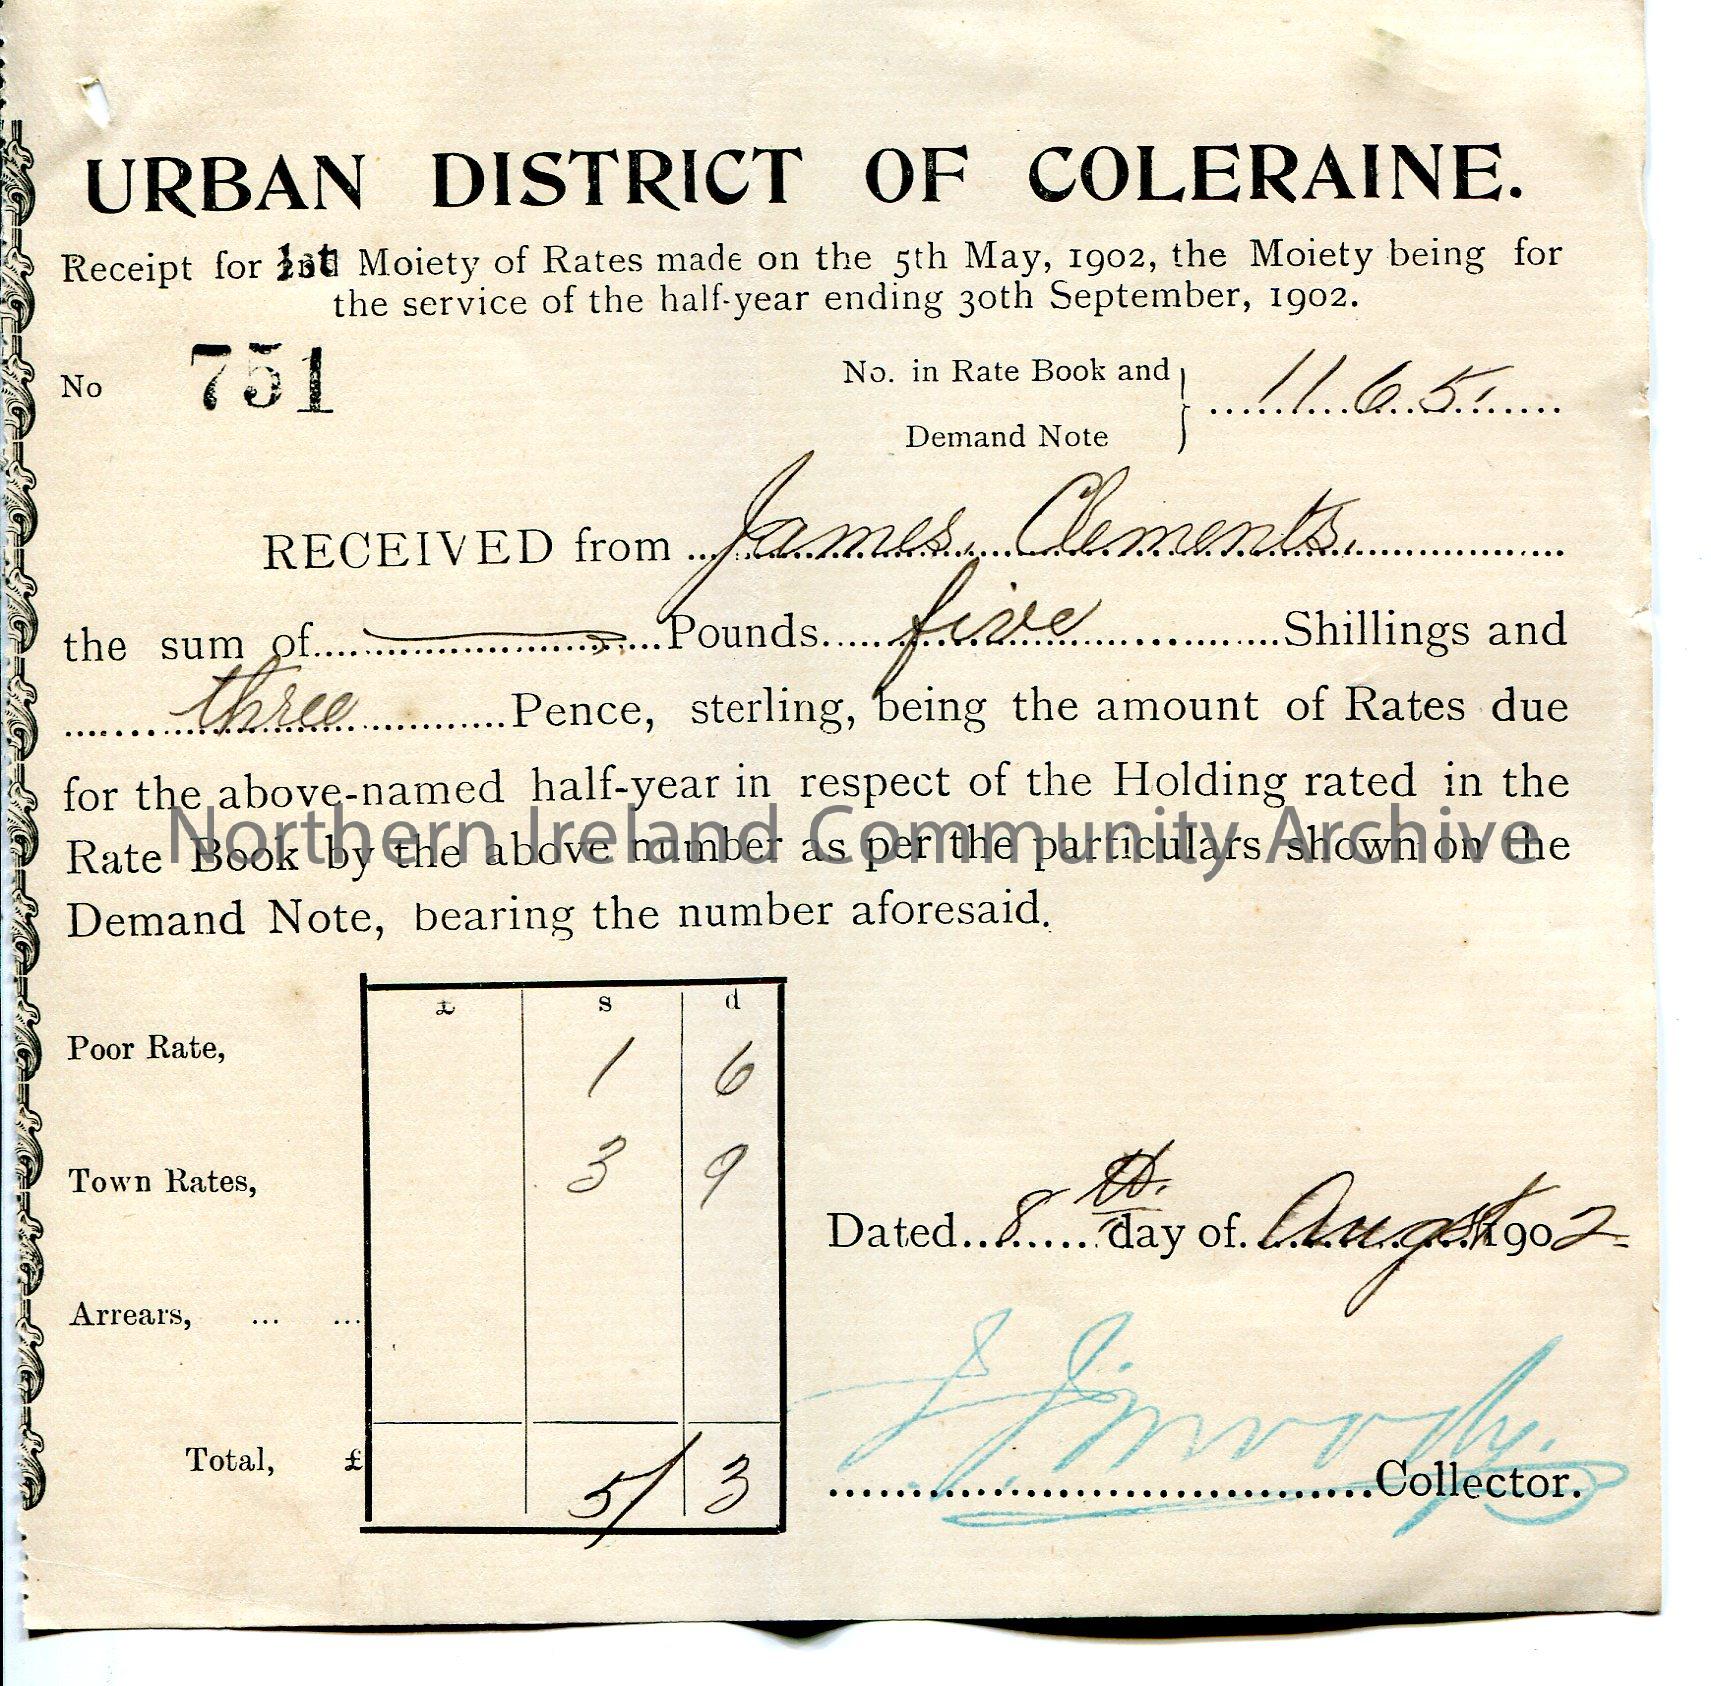 URBAN DISTRICT OF COLERAINE.
Receipt for 1st Moiety of Rates made on the 5th May, 1902, the Moiety being for
the service of the half-year ending 30th September, 1902.
No 751
No. in Rate Book and
Demand Note } 1165
RECEIVED from James Clements.
the sum of Pounds five Shillings and
three Pence, sterling, being the amount of Rates due
for the above-named half-year in respect of the Holding rated in the
Northern Ireland Community Archive
Rate Book by the above number as per the particulars shown on the
Demand Note, bearing the number aforesaid.
£ s d
Poor Rate, 1 6
Town Rates, 3 9
Dated 8th day of Augst 1902
Arrears, ... ...
Total, £ 5/ 3
Collector.